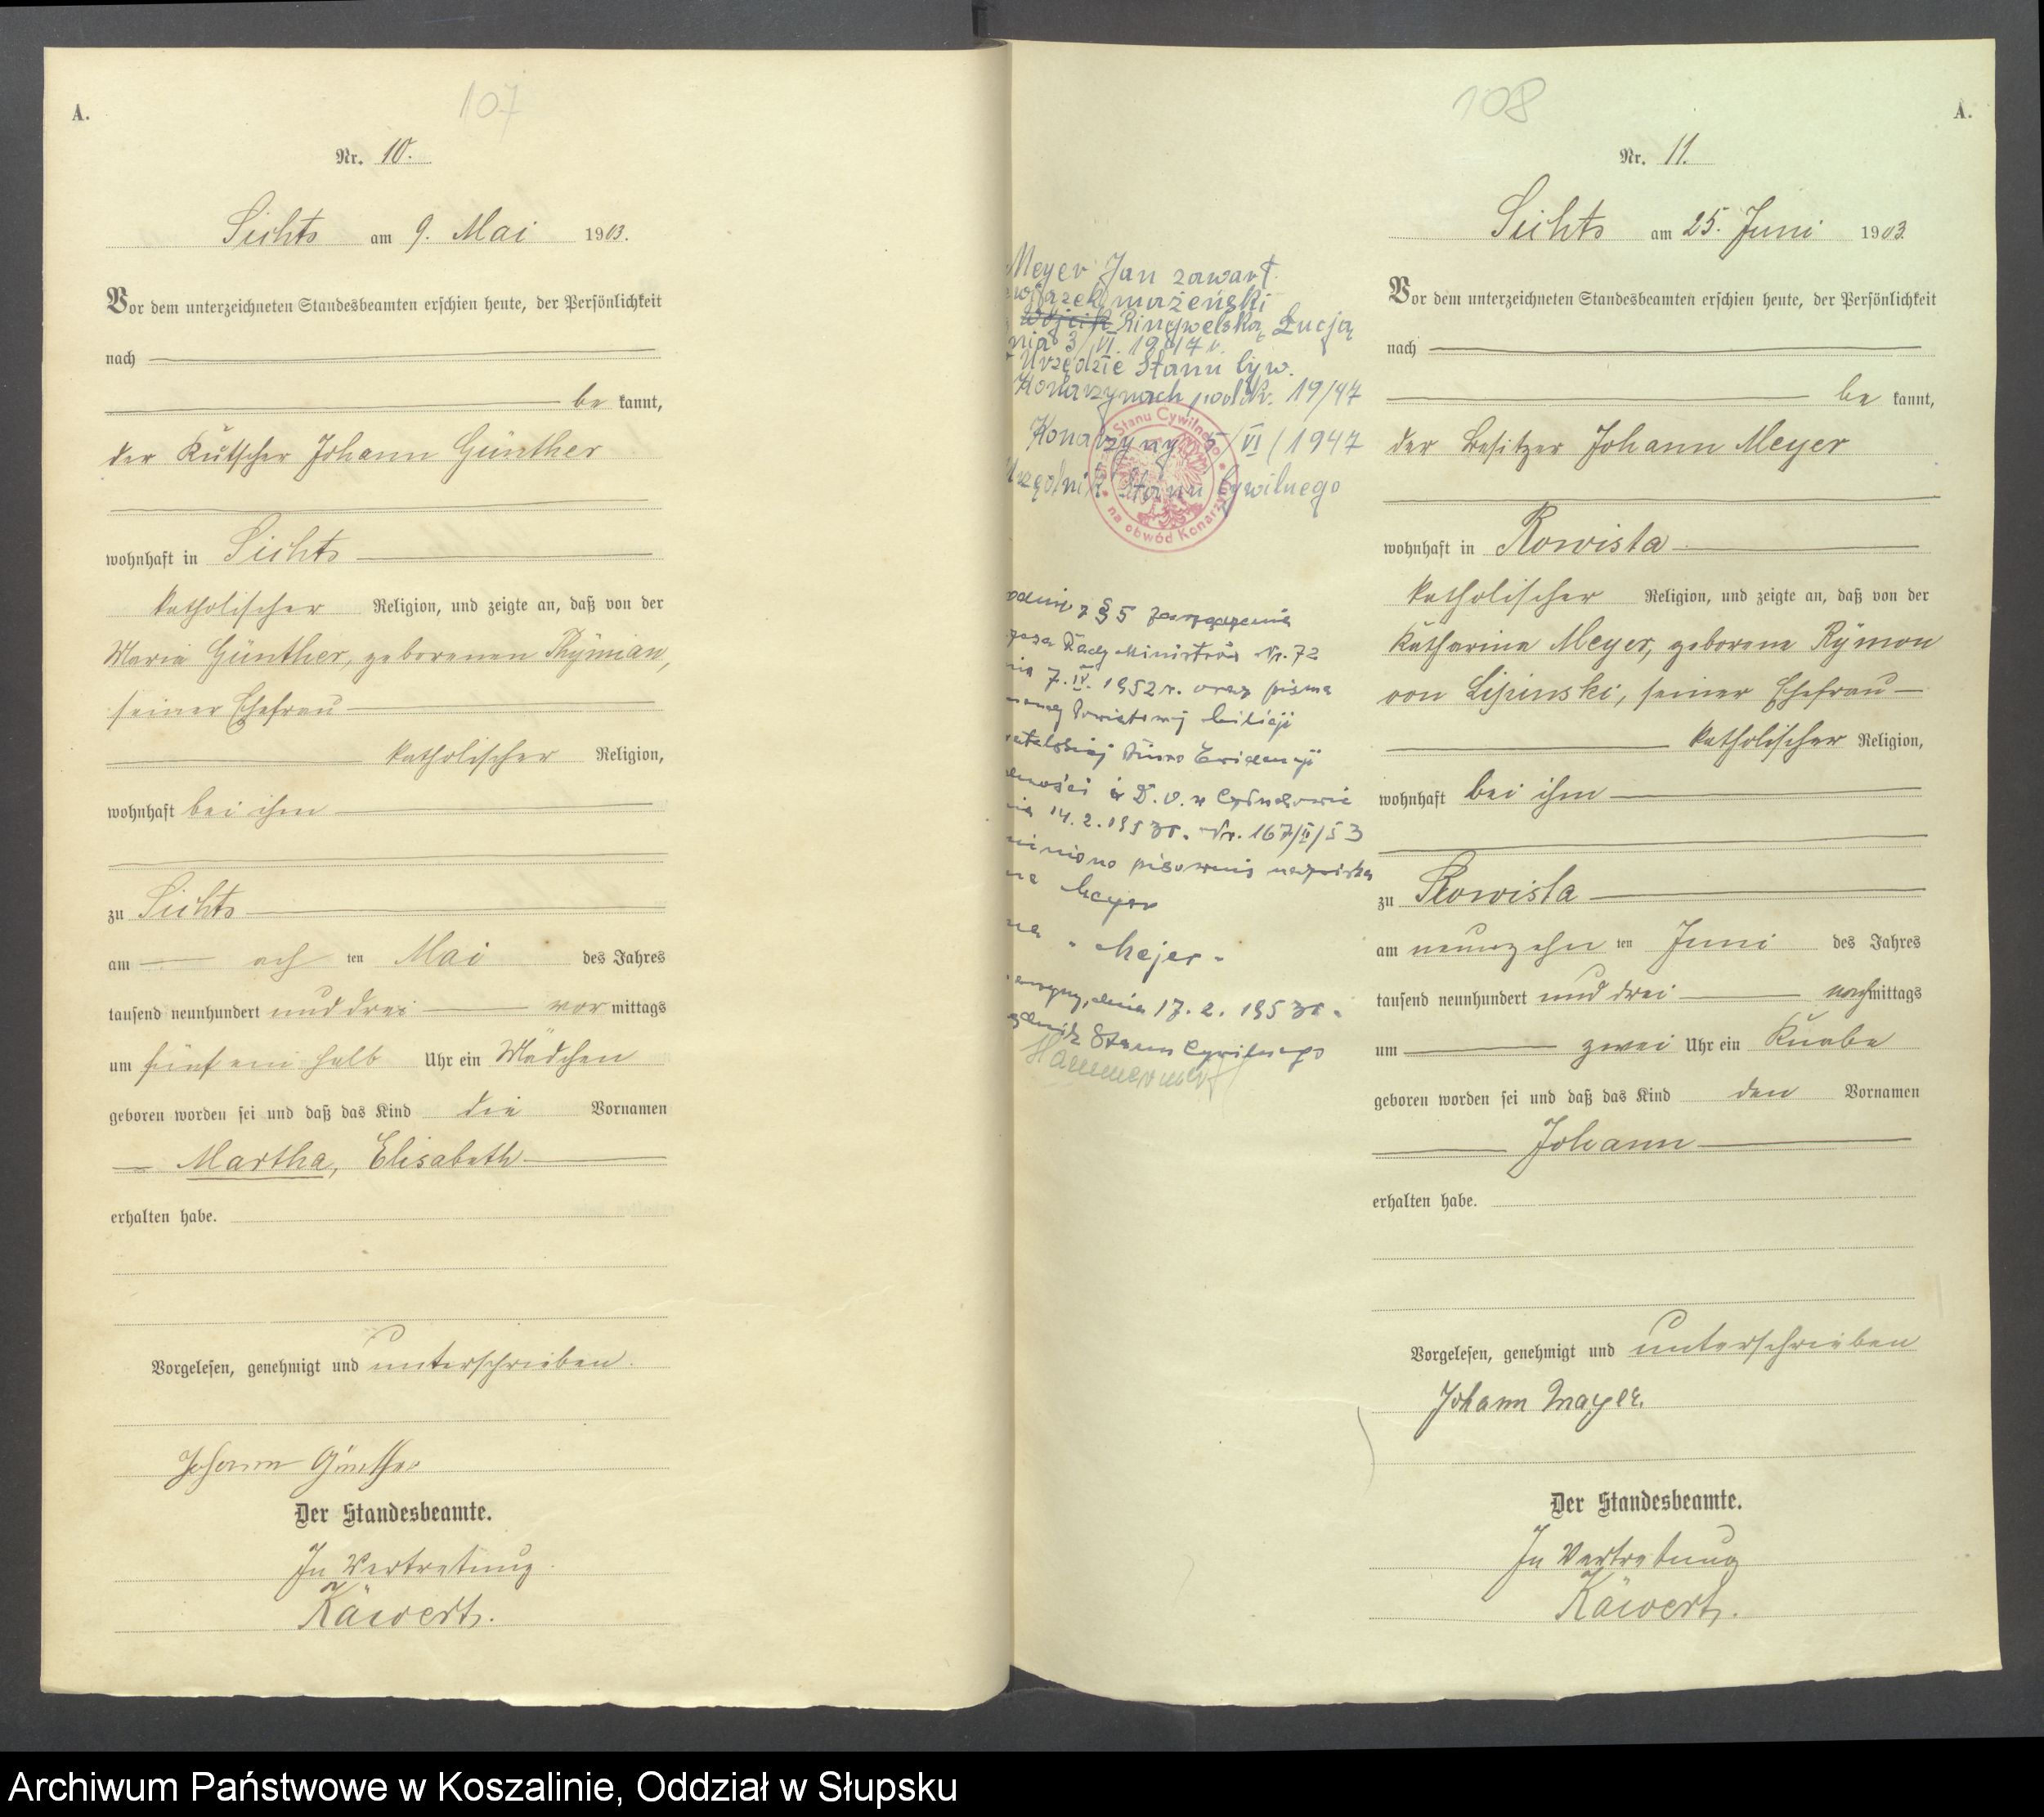 107
A.
Nr. 10.
Sichts am 9. Mai 1903.
Vor dem unterzeichneten Standesbeamten erschien heute, der Persönlichkeit
nach
be kannt,
der Kutscher Johann Günther
wohnhaft in Sichts
katholischer Religion, und zeigte an, daß von der
Maria Günther, geborenen Thymian,
seiner Ehefrau
katholischer Religion,
wohnhaft bei ihm
zu Sichts
am ach ten Mai des Jahres
tausend neunhundert und drei vor mittags
um fünf ein halb Uhr ein Mädchen
geboren worden sei und daß das Kind die Vornamen
Martha, Elisabeth
erhalten habe.
Vorgelesen, genehmigt und unterschrieben.
Johann Günther
Der Standesbeamte.
In Vertretung.
Käwert.
108
A.
Nr. 11.
Sichts am 25. Juni 1903.
Vor dem unterzeichneten Standesbeamten erschien heute, der Persönlichkeit
nach
be kannt,
der Besitzer Johann Meyer
wohnhaft in Rowista
katholischer Religion, und zeigte an, daß von der
Katharina Meyer, geborene Rymon
von Lipinski, seiner Ehefrau
katholischer Religion,
wohnhaft bei ihm
zu Rowista
am neunzehn ten Juni des Jahres
tausend neunhundert und drei nachmittags
um zwei Uhr ein Knabe
geboren worden sei und daß das Kind den Vornamen
Johann
erhalten habe.
Vorgelesen, genehmigt und unterschrieben
Johann Mayer.
Der Standesbeamte.
In Vertretung
Käwert.
Meyer Jan zawarł
związek mażeński
Ringwelską Łucją
3/VI. 1947 r.
Urzędzie Stanu Cyw.
Konarzynach pod Nr. 19/47
Konarzyny 5/VI/1947
Stanu Cywilnego
Stanu Cywilnego
na obwód Konarzyny
z § 5 zarządzenia
Rady Ministrów Nr. 72
7. IV. 1952 r. oraz pisma
Powiatowej Milicji
Biuro Ewidencji
i D. O. w Człuchowie
14. 2. 1953 r. Nr. 167/II/53
pisownię nazwiska
Meyer
na "Mejer"
dnia 17. 2. 1953 r.
Stanu Cywilnego
Archiwum Państwowe w Koszalinie, Oddział w Słupsku